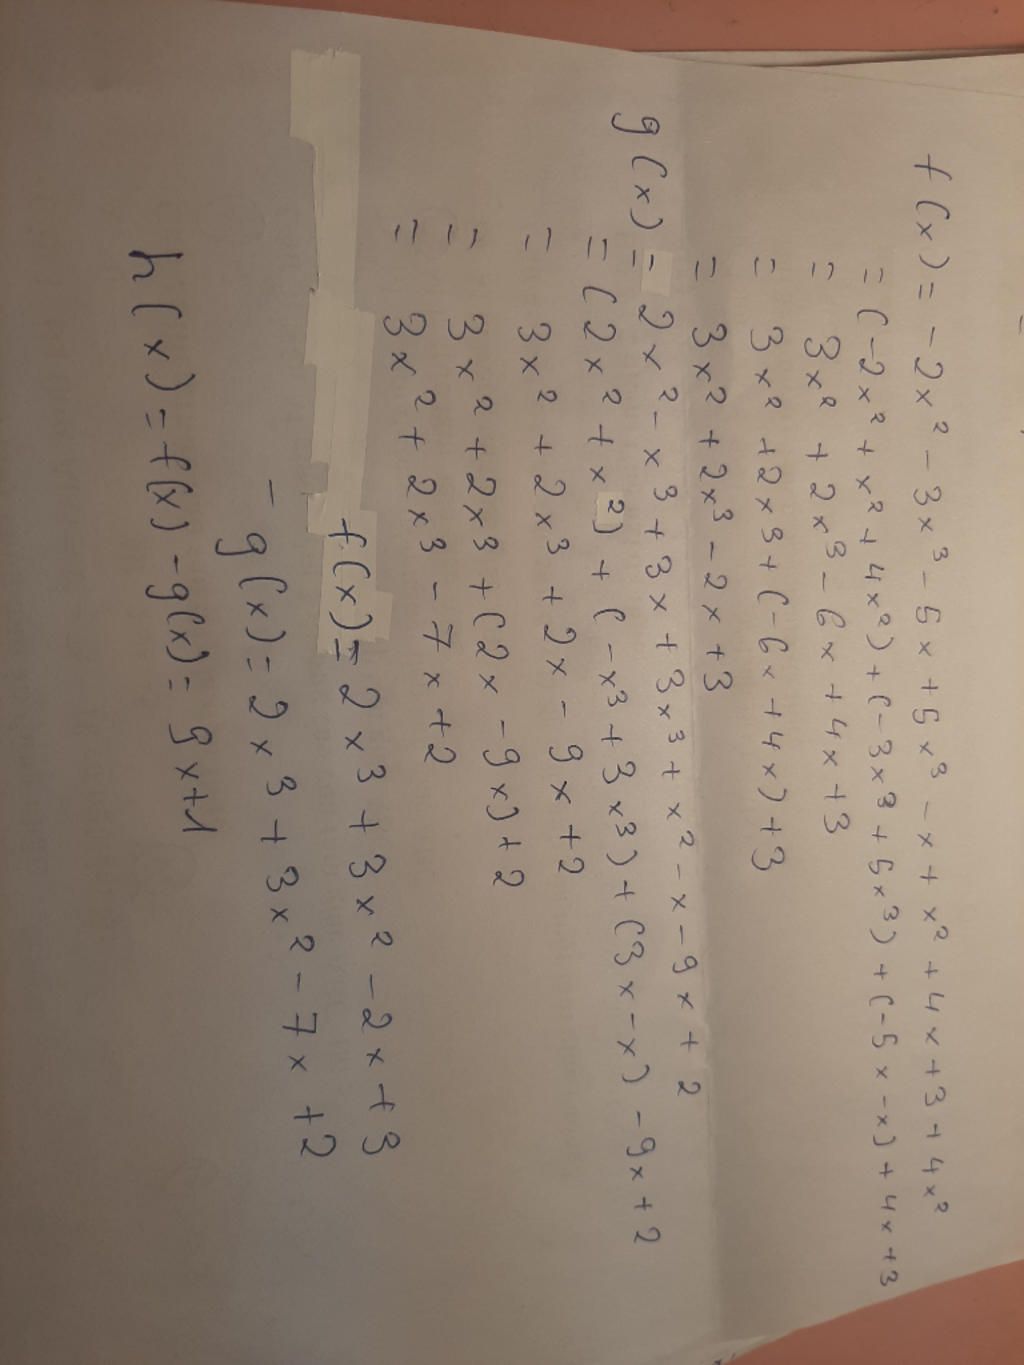 f(x) = -2x² - 3x³ - 5x + 5x³ - x + x² + 4x + 3 + 4x²
= (-2x² + x² + 4x²) + (-3x³ + 5x³) + (-5x - x) + 4x + 3
= 3x² + 2x³ - 6x + 4x + 3
= 3x² + 2x³ + (-6x + 4x) + 3
= 3x² + 2x³ - 2x + 3
g(x) = 2x² - x³ + 3x + 3x³ + x² - x - 9x + 2
= (2x² + x²) + (-x³ + 3x³) + (3x - x) - 9x + 2
= 3x² + 2x³ + 2x - 9x + 2
= 3x² + 2x³ + (2x - 9x) + 2
= 3x² + 2x³ - 7x + 2
f(x) = 2x³ + 3x² - 2x + 3
-
g(x) = 2x³ + 3x² - 7x + 2
h(x) = f(x) - g(x) = 9x + 1